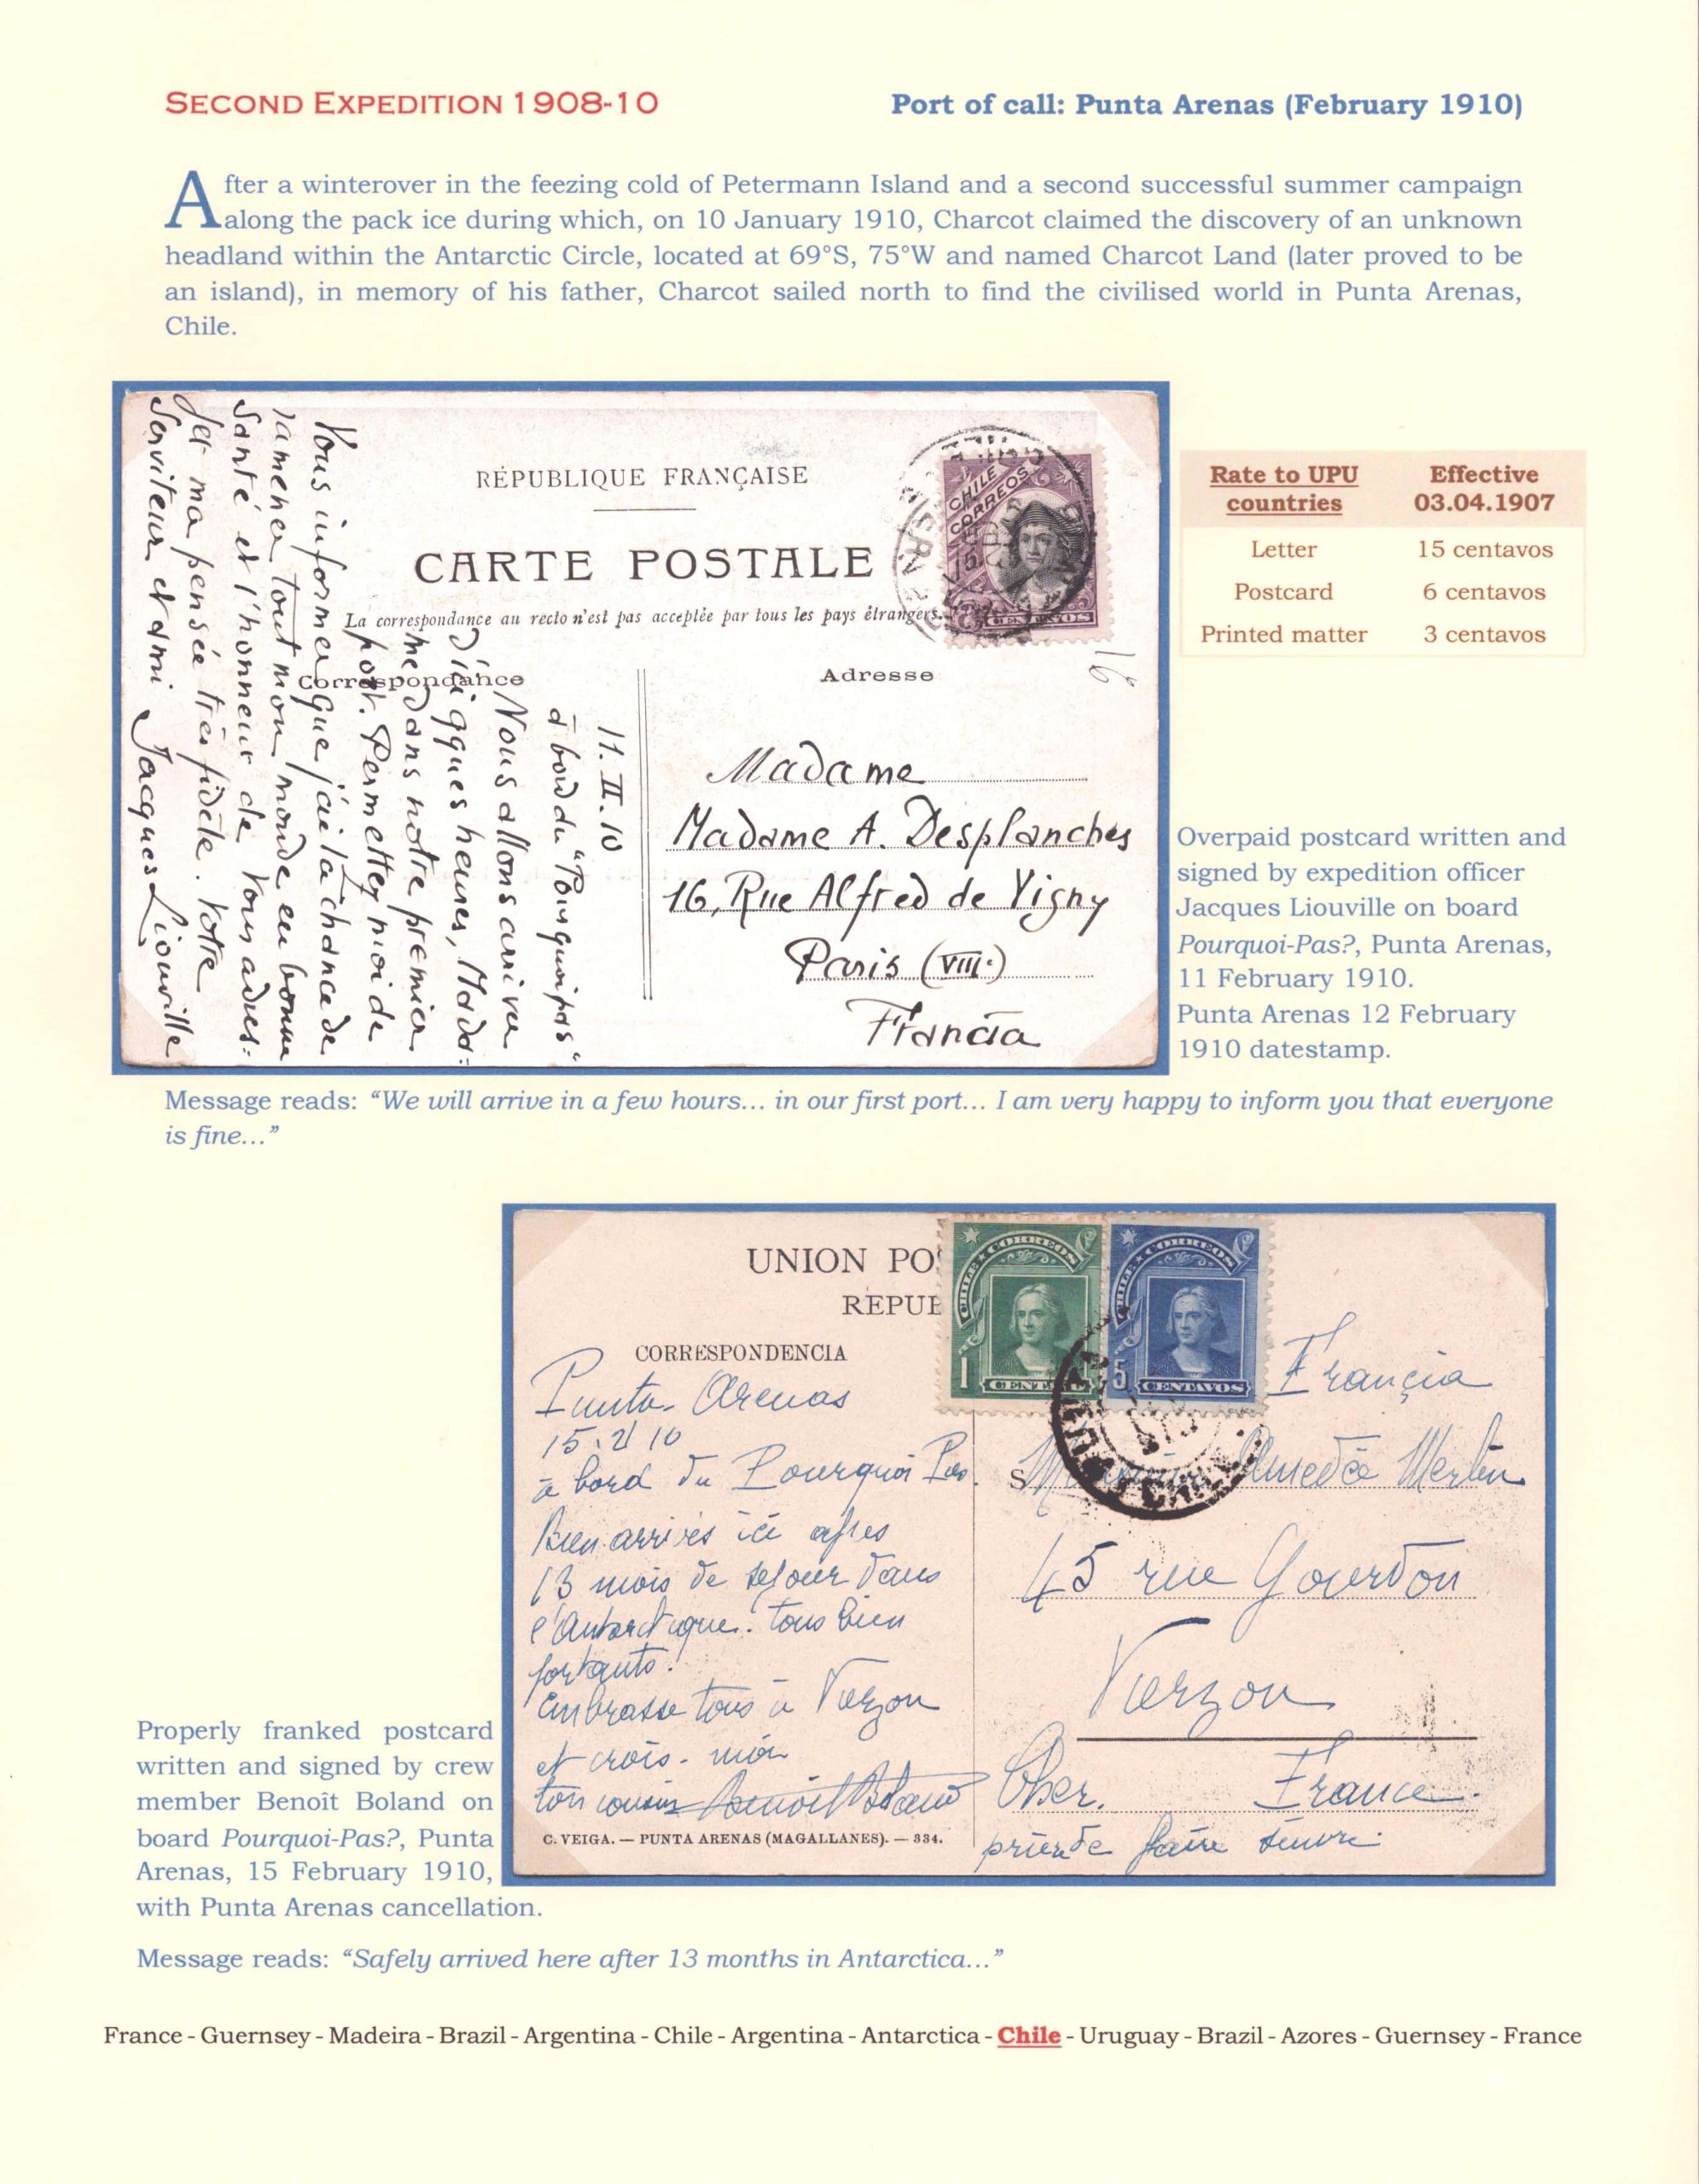 SECOND EXPEDITION 1908-10
Port of call: Punta Arenas (February 1910)
After a winterover in the feezing cold of Petermann Island and a second successful summer campaign
along the pack ice during which, on 10 January 1910, Charcot claimed the discovery of an unknown
headland within the Antarctic Circle, located at 69°S, 75°W and named Charcot Land (later proved to be
an island), in memory of his father, Charcot sailed north to find the civilised world in Punta Arenas,
Chile.
RÉPUBLIQUE FRANÇAISE
CARTE POSTALE
La correspondance au recto n'est pas acceptée par tous les pays étrangers.
Correspondance
Adresse
CHILE
CORREOS
15
CENTAVOS
16
11.II.10
à bord du "Pourquoi pas"
Nous allons arriver
d'ici qques heures, Mada=
me dans notre premier
port. Permettez moi de
Vous informer que j'ai la chance de
ramener tout mon monde en bonne
santé et l'honneur de vous adres=
ser ma pensée très fidèle. Votre
Serviteur et ami Jacques Liouville
Madame
Madame A. Desplanches
16, Rue Alfred de Vigny
Paris (VIIIe)
Francia
Rate to UPU countries
Effective 03.04.1907
Letter 15 centavos
Postcard 6 centavos
Printed matter 3 centavos
Overpaid postcard written and
signed by expedition officer
Jacques Liouville on board
Pourquoi-Pas?, Punta Arenas,
11 February 1910.
Punta Arenas 12 February
1910 datestamp.
Message reads: “We will arrive in a few hours... in our first port... I am very happy to inform you that everyone
is fine...”
UNION PO
REPUB
CORRESPONDENCIA
CHILE CORREOS
1 CENTAVO
CHILE CORREOS
5 CENTAVOS
Punta Arenas
15.2 10
à bord du Pourquoi Pas.
Bien arrivés ici après
13 mois de séjour dans
l'Antarctique. tous bien
portants!
Embrasse tous à Vierzon
et crois-moi
ton cousin Benoît Boland
C. VEIGA. — PUNTA ARENAS (MAGALLANES). — 334.
Francia
S
Monsieur Amedée Merlin
45 rue Gourdon
Vierzon
Cher. France.
prière de faire suivre
Properly franked postcard
written and signed by crew
member Benoît Boland on
board Pourquoi-Pas?, Punta
Arenas, 15 February 1910,
with Punta Arenas cancellation.
Message reads: “Safely arrived here after 13 months in Antarctica...”
France - Guernsey - Madeira - Brazil - Argentina - Chile - Argentina - Antarctica - Chile - Uruguay - Brazil - Azores - Guernsey - France